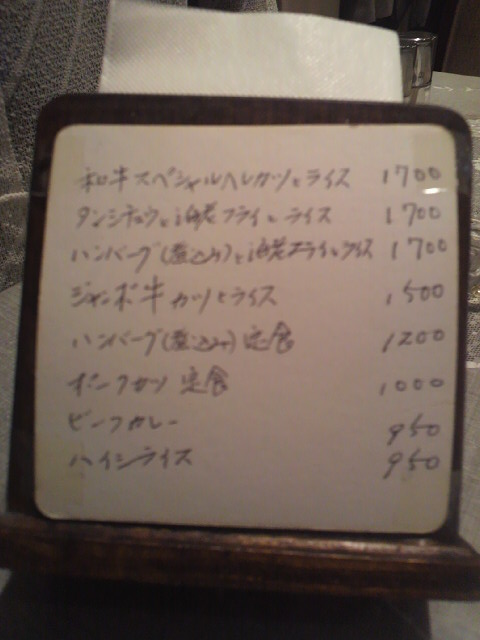 和牛スペシャルヘレカツとライス 1700
タンシチュウと海老フライとライス 1700
ハンバーグ(煮込み)と海老フライとライス 1700
ジャンボ牛カツとライス 1500
ハンバーグ(煮込み)定食 1200
ポークカツ 定食 1000
ビーフカレー 950
ハイシライス 950